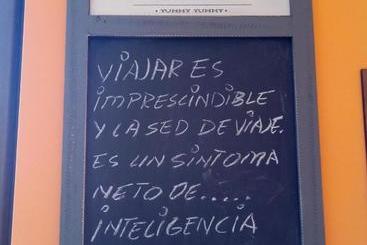 • YUMMY YUMMY •
VIAJAR ES
IMPRESCINDIBLE
Y LA SED DE VIAJE.
ES UN SINTOMA
NETO DE.....
INTELIGENCIA